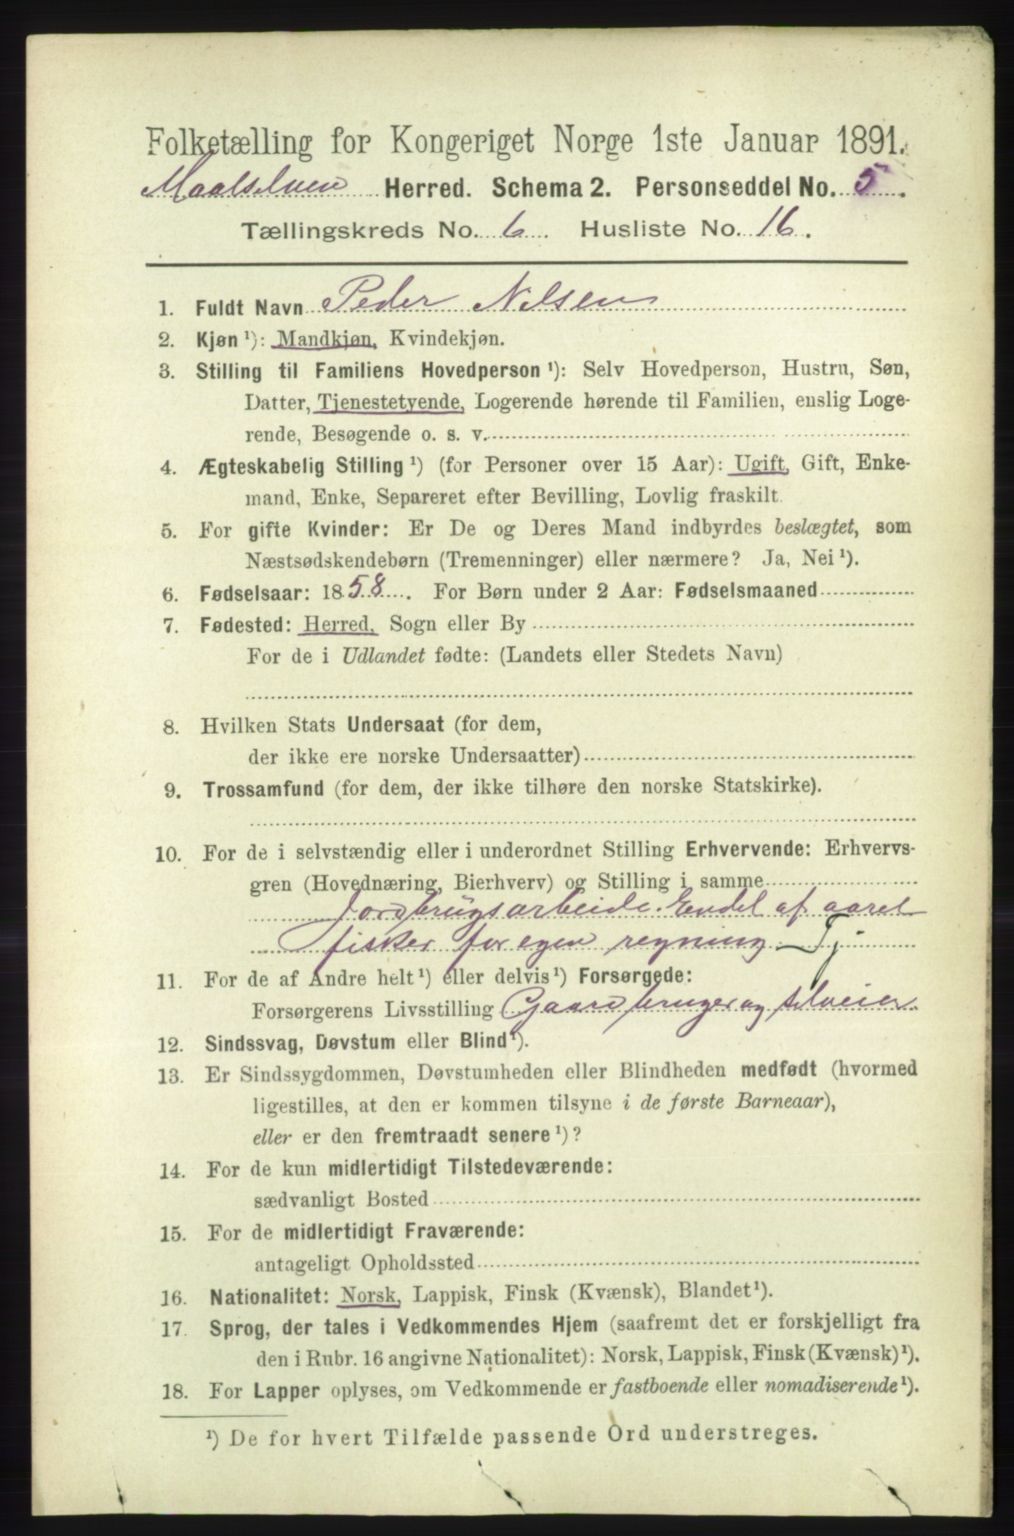 Folketælling for Kongeriget Norge 1ste Januar 1891.
Maalselven Herred. Schema 2. Personseddel No. 5.
Tællingskreds No. 6. Husliste No. 16.
1. Fuldt Navn Peder Nilsen
2. Kjøn ¹): Mandkjøn, Kvindekjøn.
3. Stilling til Familiens Hovedperson ¹): Selv Hovedperson, Hustru, Søn,
Datter, Tjenestetyende, Logerende hørende til Familien, enslig Loge-
rende, Besøgende o. s. v.
4. Ægteskabelig Stilling ¹) (for Personer over 15 Aar): Ugift, Gift, Enke-
mand, Enke, Separeret efter Bevilling, Lovlig fraskilt
5. For gifte Kvinder: Er De og Deres Mand indbyrdes beslægtet, som
Næstsødskendebørn (Tremenninger) eller nærmere? Ja, Nei ¹).
6. Fødselsaar: 1858. For Børn under 2 Aar: Fødselsmaaned
7. Fødested: Herred, Sogn eller By
For de i Udlandet fødte: (Landets eller Stedets Navn)
8. Hvilken Stats Undersaat (for dem,
der ikke ere norske Undersaatter)
9. Trossamfund (for dem, der ikke tilhøre den norske Statskirke).
10. For de i selvstændig eller i underordnet Stilling Erhvervende: Erhvervs-
gren (Hovednæring, Bierhverv) og Stilling i samme
Jordbrugsarbeide. Endel af aaret
fisker for egen regning Tj
11. For de af Andre helt ¹) eller delvis ¹) Forsørgede:
Forsørgerens Livsstilling Gaardbruger og selveier
12. Sindssvag, Døvstum eller Blind ¹).
13. Er Sindssygdommen, Døvstumheden eller Blindheden medfødt (hvormed
ligestilles, at den er kommen tilsyne i de første Barneaar),
eller er den fremtraadt senere ¹)?
14. For de kun midlertidigt Tilstedeværende:
sædvanligt Bosted
15. For de midlertidigt Fraværende:
antageligt Opholdssted
16. Nationalitet: Norsk, Lappisk, Finsk (Kvænsk), Blandet ¹).
17. Sprog, der tales i Vedkommendes Hjem (saafremt det er forskjelligt fra
den i Rubr. 16 angivne Nationalitet): Norsk, Lappisk, Finsk (Kvænsk) ¹).
18. For Lapper oplyses, om Vedkommende er fastboende eller nomadiserende ¹).
¹) De for hvert Tilfælde passende Ord understreges.